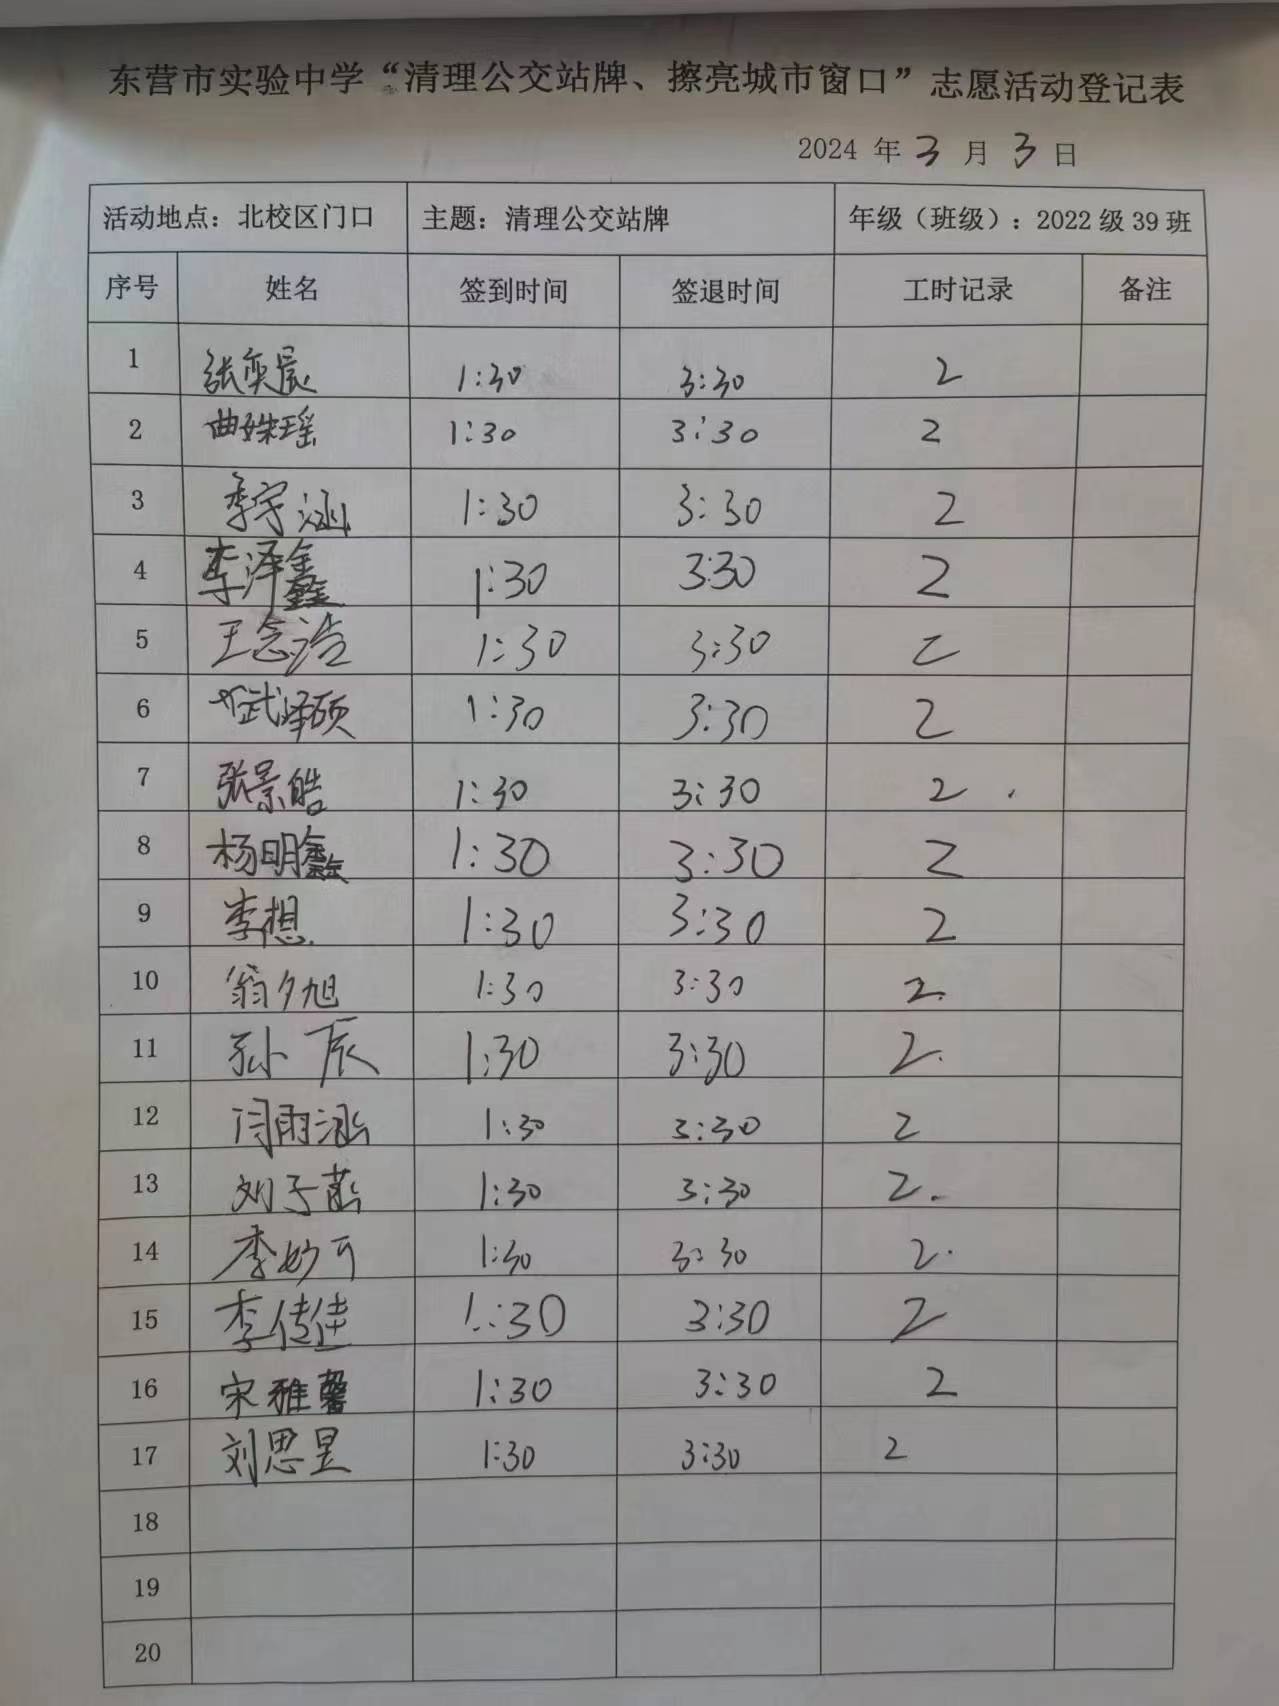 东营市实验中学“清理公交站牌、擦亮城市窗口”志愿活动登记表
2024 年 3 月 3 日
活动地点：北校区门口 主题：清理公交站牌 年级（班级）：2022 级 39 班
序号 姓名 签到时间 签退时间 工时记录 备注
1 张奕晨 1:30 3:30 2
2 曲姝瑶 1:30 3:30 2
3 李宇涵 1:30 3:30 2
4 李泽鑫 1:30 3:30 2
5 王念浩 1:30 3:30 2
6 武泽硕 1:30 3:30 2
7 张景皓 1:30 3:30 2
8 杨明鑫 1:30 3:30 2
9 李想 1:30 3:30 2
10 翁夕旭 1:30 3:30 2
11 孙辰 1:30 3:30 2
12 闫雨涵 1:30 3:30 2
13 刘子菡 1:30 3:30 2
14 李妙可 1:30 3:30 2
15 李佳 1:30 3:30 2
16 宋雅馨 1:30 3:30 2
17 刘思昱 1:30 3:30 2
18
19
20